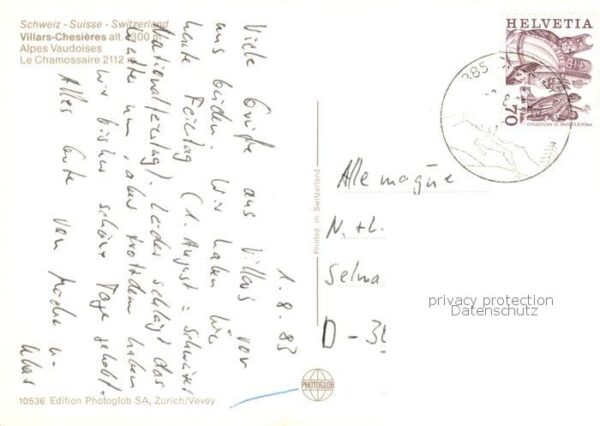 Schweiz - Suisse - Switzerland
Villars-Chesières alt. 1300 m
Alpes Vaudoises
Le Chamossaire 2112 m
1.8.83
Viele Grüße aus Villars von
uns beiden. Wir haben hier
heute Feiertag (1. August = Schweizer
Nationalfeiertag). Leider schlägt das
Wetter um, aber trotzdem haben
wir bisher schöne Tage gehabt.
Alles Gute von
10536 Edition Photoglob SA, Zurich/Vevey
Printed in Switzerland
PHOTOGLOB
HELVETIA
70
PROCESSIONE DI MENDRISIO
Allemagne
N. + L.
Selma
D - 3
privacy protection
Datenschutz